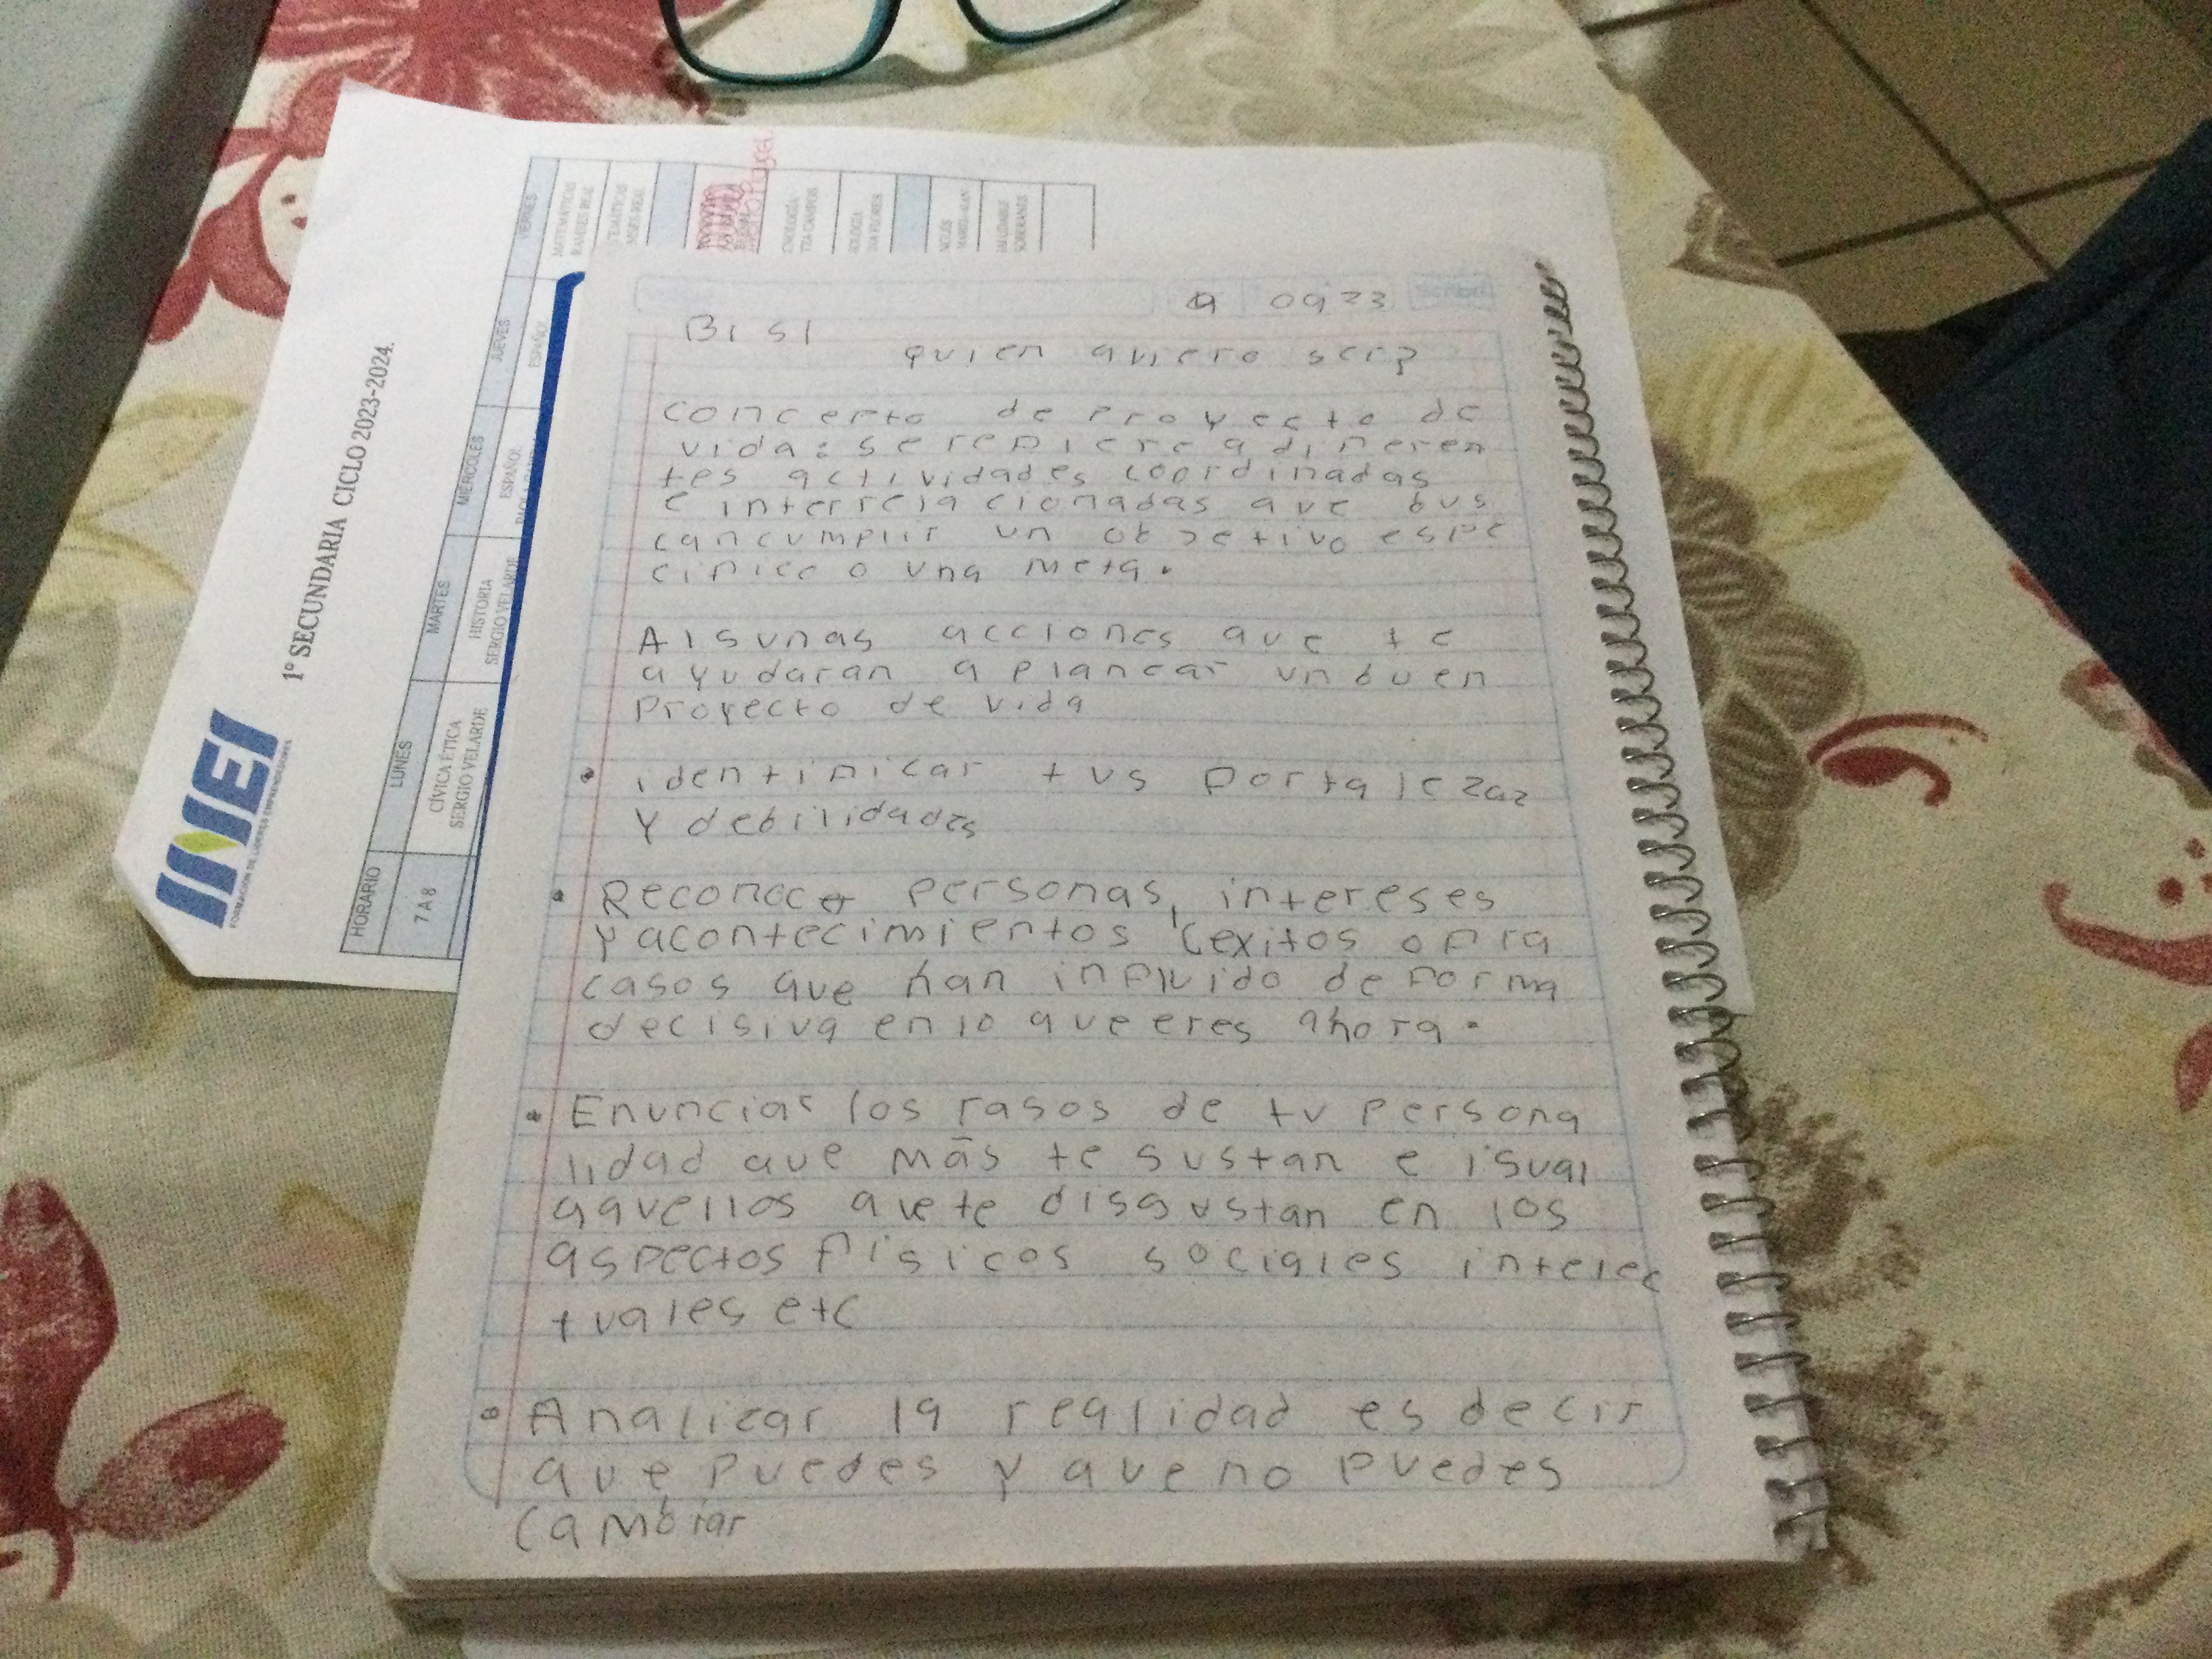 INEI
FORMACIÓN DE LÍDERES EMPRENDEDORES
1º SECUNDARIA CICLO 2023-2024.
HORARIO
LUNES
MARTES
MIÉRCOLES
JUEVES
VIERNES
7 A 8
CÍVICA ÉTICA
SERGIO VELARDE
HISTORIA
SERGIO VELARDE
ESPAÑOL
ESPAÑOL
MATEMÁTICAS
0923
B1 S1
quien quiero ser?
Concepto de proyecto de
vida: se refiere a diferen
tes actividades coordinadas
e interrelacionadas que bus
can cumplir un objetivo espe
cifico o una meta.
Algunas acciones que te
ayudaran a planear un buen
proyecto de vida
• identificar tus fortalezaz
y debilidades
• Reconocer personas, intereses
y acontecimientos (exitos o fra
casos que han influido de forma
decisiva en lo que eres ahora.
• Enunciar los rasgos de tu persona
lidad que más te gustan e igual
aquellos que te disgustan en los
aspectos físicos sociales intelec
tuales etc
• Analizar la realidad es decir
que puedes y que no puedes
cambiar